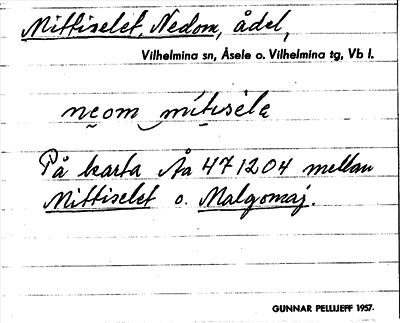 Mittiselet, Nedom, ådel,
Vilhelmina sn, Åsele o. Vilhelmina tg, Vb l.
neom mitisele
På karta Åa 471204 mellan
Mittiselet o. Malgomaj.
GUNNAR PELLIJEFF 1957.